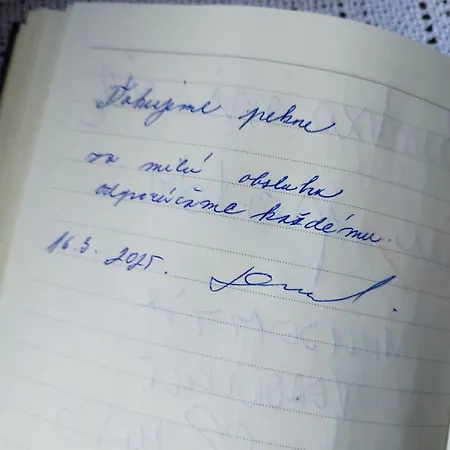 Ďakujeme pekne
za milú obsluhu
odporúčame každému.
16.3.2025.